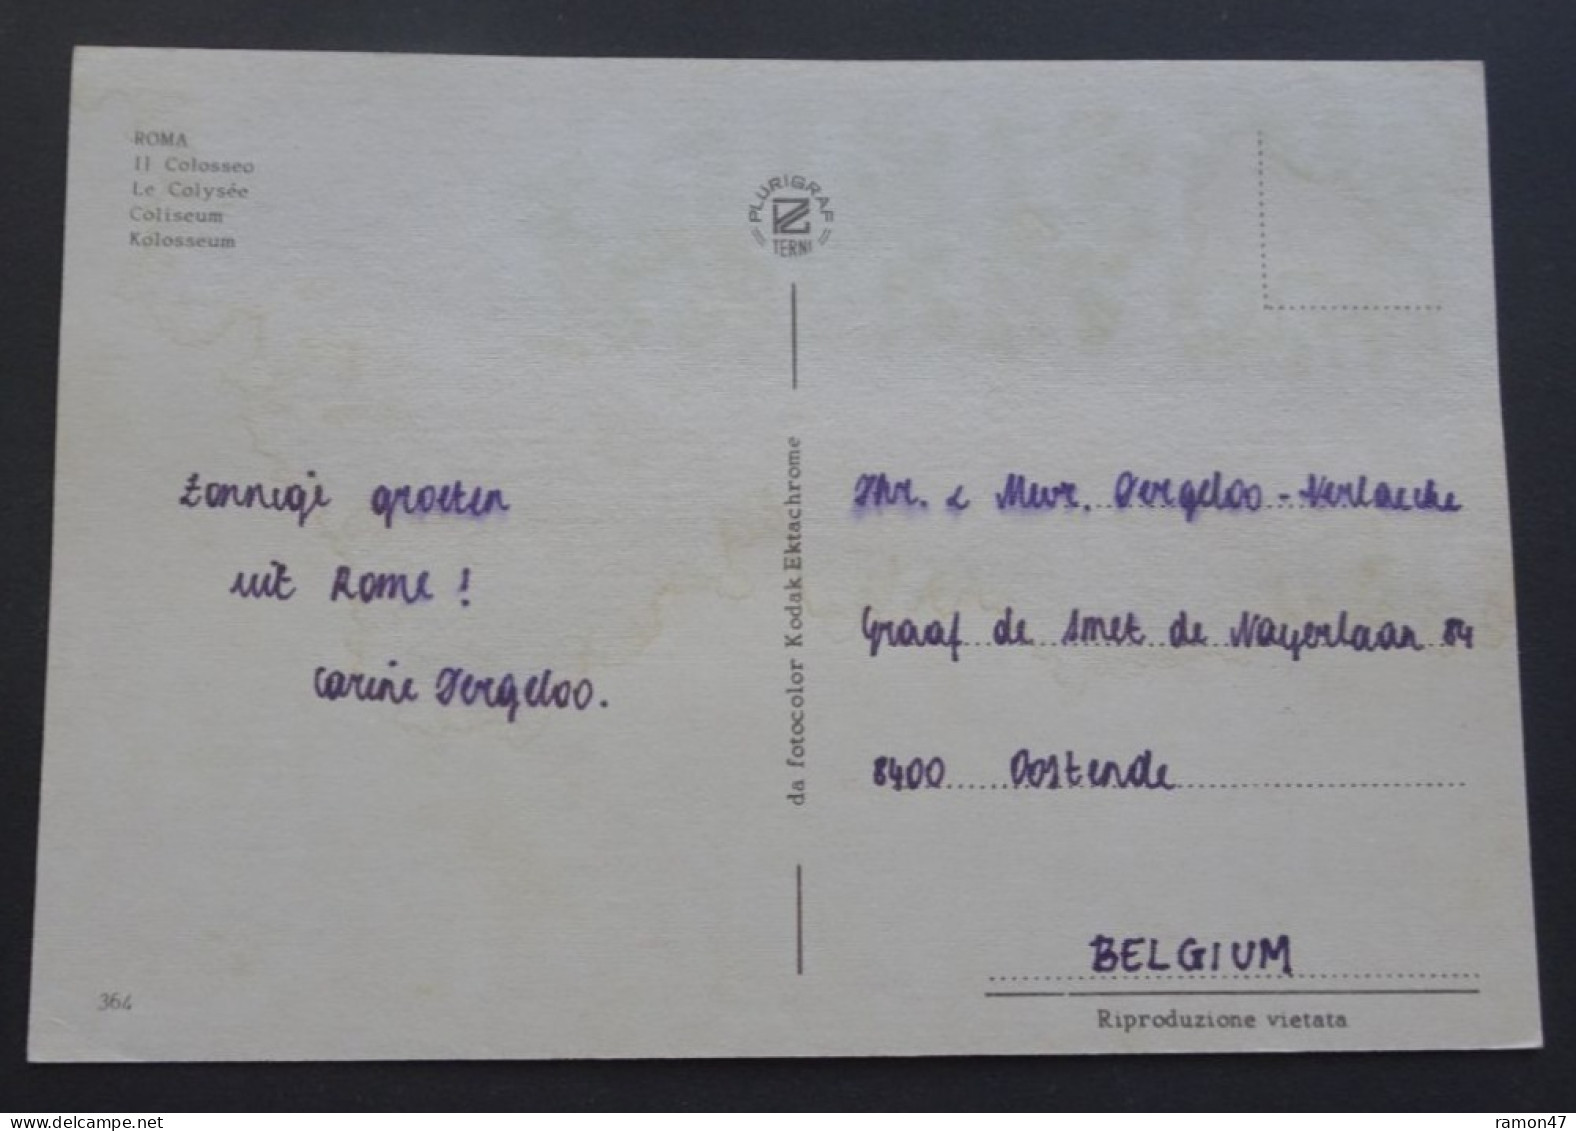 ROMA
Il Colosseo
Le Colysée
Coliseum
Kolosseum
PLURIGRAF
TERNI
da fotocolor Kodak Ektachrome
Zonnige groeten
uit Rome!
Carine Dergeloo.
Dhr. & Mevr. Dergeloo-Verlaecke
Graaf de Smet de Nayerlaan 84
8400 Oostende
BELGIUM
Riproduzione vietata
364
delcampe.net
ramon47